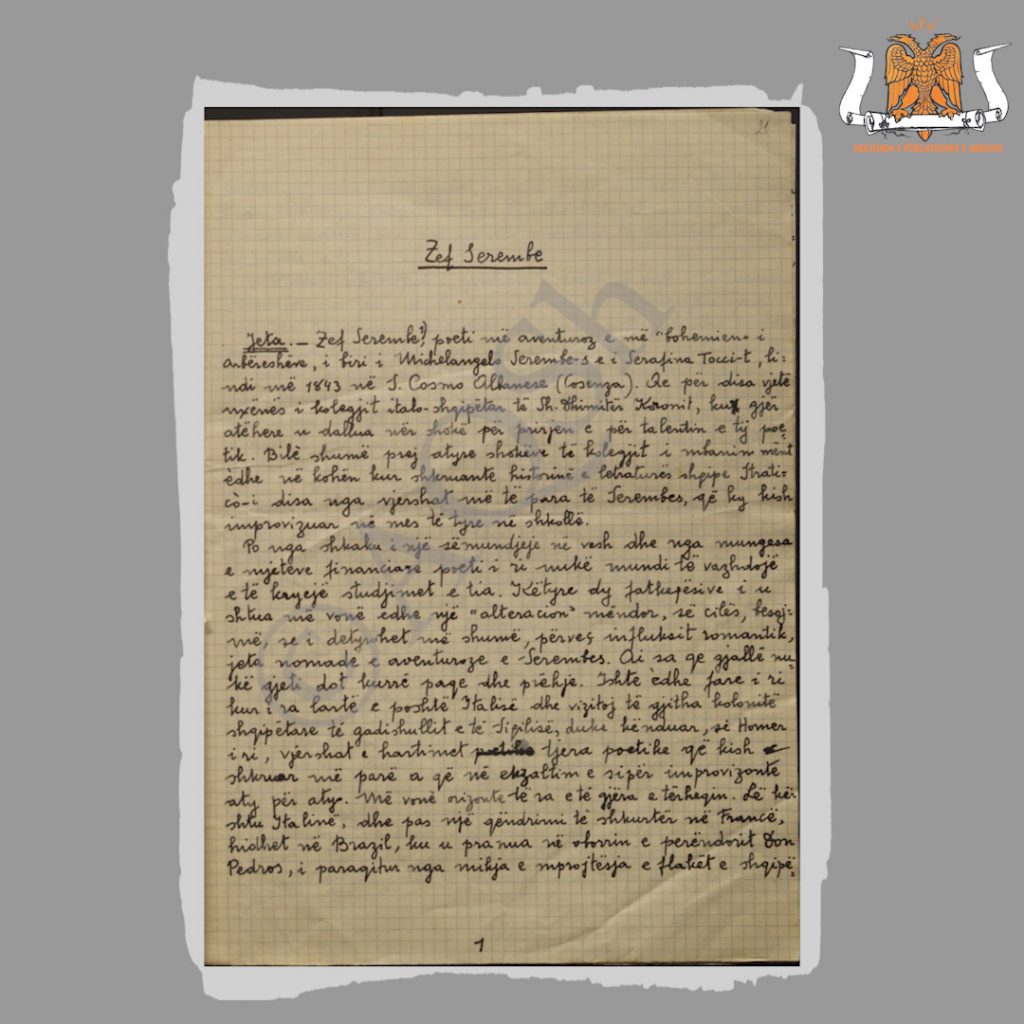 21
Zef Serembe
Jeta. – Zef Serembe¹), poeti më aventuroz e më "bohemien" i
Arbëreshëve, i biri i Michelangelo Serembe-s e i Serafina Tocci-t, li=
ndi më 1843 në S. Cosmo Albanese (Cosenza). Qe për disa vjetë
nxënës i kolegjit italo-shqipëtar të Sh. Dhimitër Koronit, ku gjër
atëhere u dallua nër shokë për prirjen e për talentin e tij poe=
tik. Bilè shumë prej atyse shokëve të kolegjit i mbanim mënt
èdhe në kohën kur shkruante historinë e letraturës shqipe Strati=
cò-i disa nga vjershat më të para të Serembes, që ky kish
improvizuar në mes të tyre në shkollë.
Po nga shkaku i një sëmundjeje në vesh dhe nga mungesa
e mjeteve financiare poeti i ri nukë mundi të vazhdojë
e të kryejë studjimet e tia. Këtyre dy fatkeqësive i u
shtua më vonë edhe një "alteracion" mëndor, së cilës, besoj=
më, se i detyrohet më shumë, përveç influksit romantik,
jeta nomade e aventuroze e Serembes. Ai sa qe gjallë nu=
kë gjeti dot kurrë paqe dhe prëhje. Ishte èdhe fare i ri
kur i ra lartë e poshtë Italisë dhe vizitoj të gjitha kolonitë
shqipëtare të gadishullit e të Siçilisë, duke kënduar, së Homer
i ri, vjershat e hartimet tjera poetike që kish
shkruar më parë a që në ekzaltim e sipër improvizonte
aty për aty. Më vonë orizonte të ra e të gjëra e tërheqin. Lë kë=
shtu Italinë, dhe pas një qëndrimi të shkurtër në Francë,
hidhet në Brazil, ku u pranua në oborrin e perëndorit Don
Pedros, i paraqitur nga mikja e mprojtësja e flakët e shqipë=
1